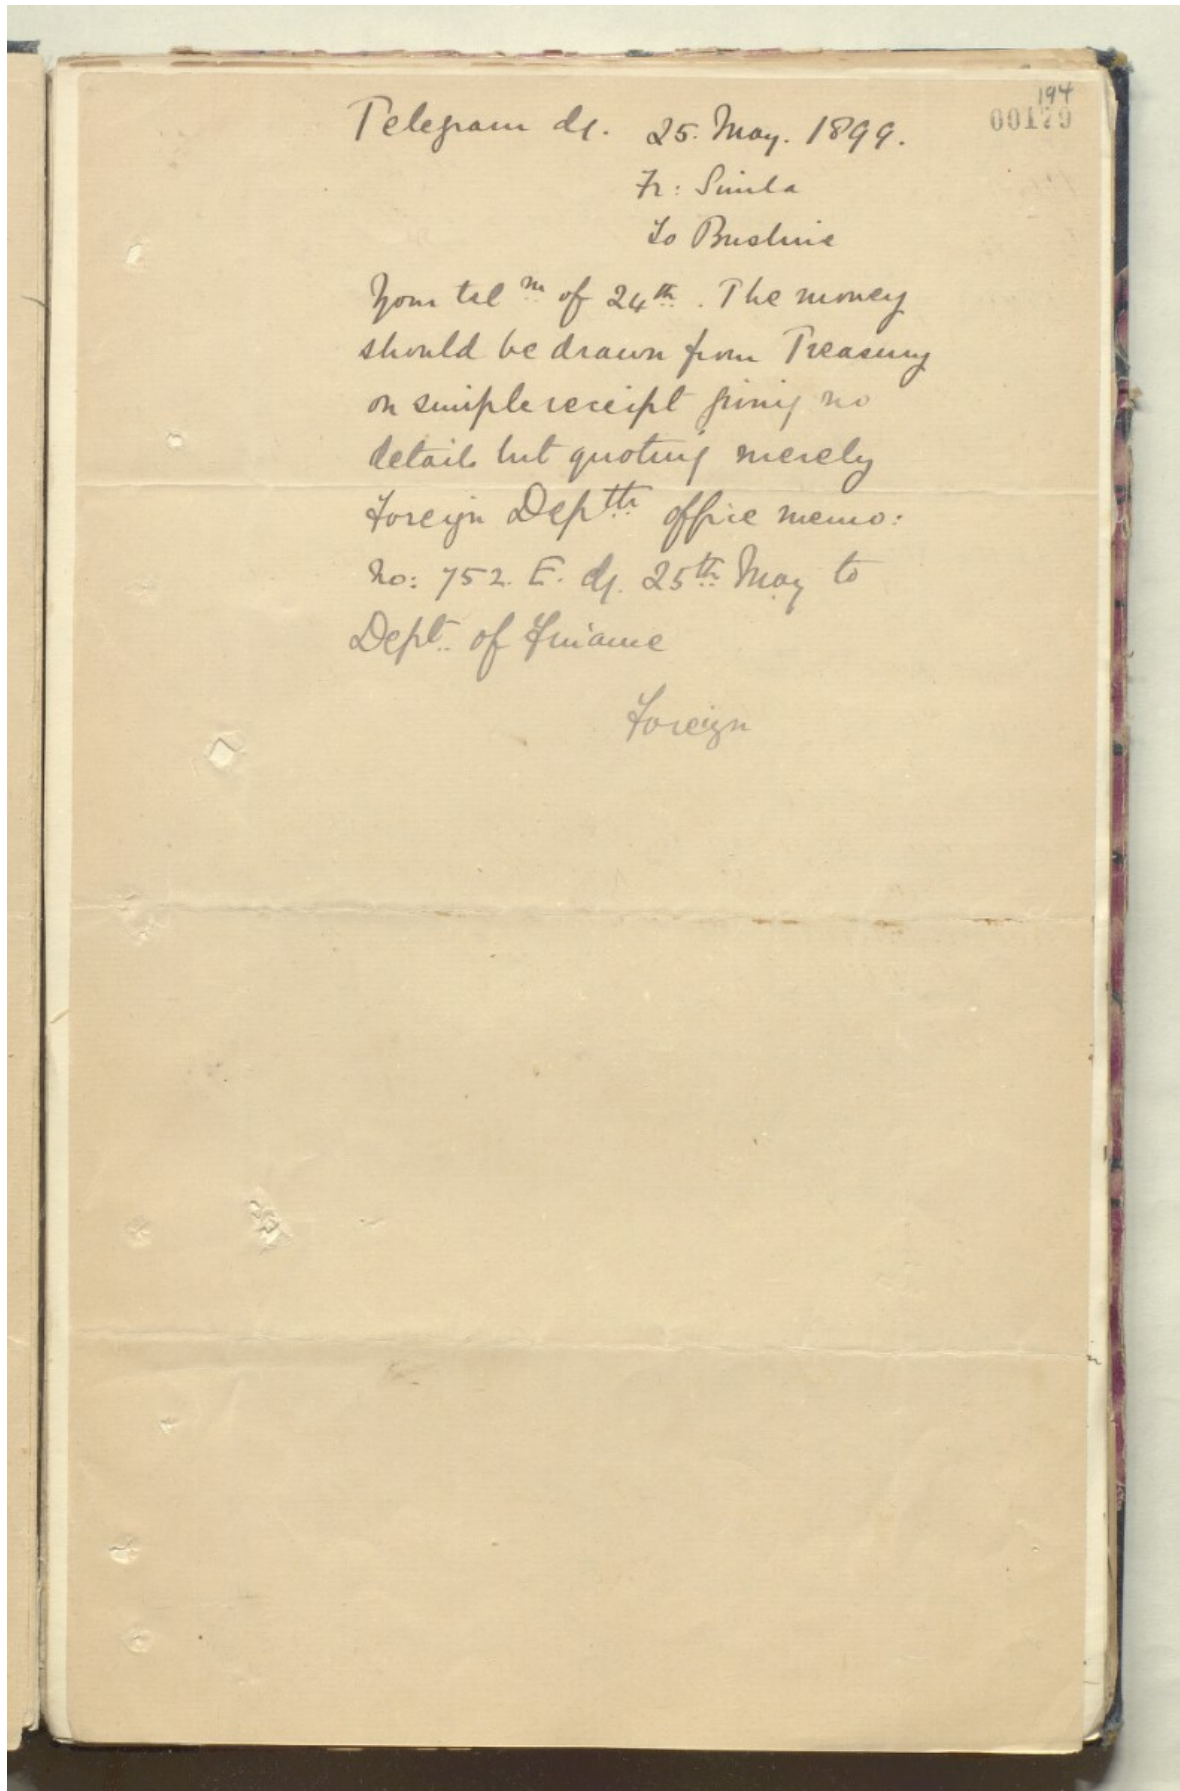 194
00179
Telegram dt. 25. May. 1899.
Fr: Simla
To Bushire
Your tel m of 24th. The money
should be drawn from Treasury
on simple receipt giving no
details but quoting merely
Foreign Deptth office memo:
No: 752. E. dt. 25th May to
Dept. of Finance
Foreign